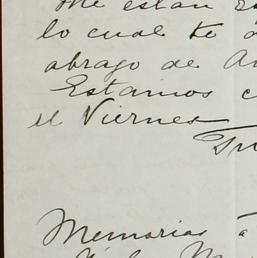 Me están
lo cual te
abrazo de
Estamos
el Viernes
Memorias a